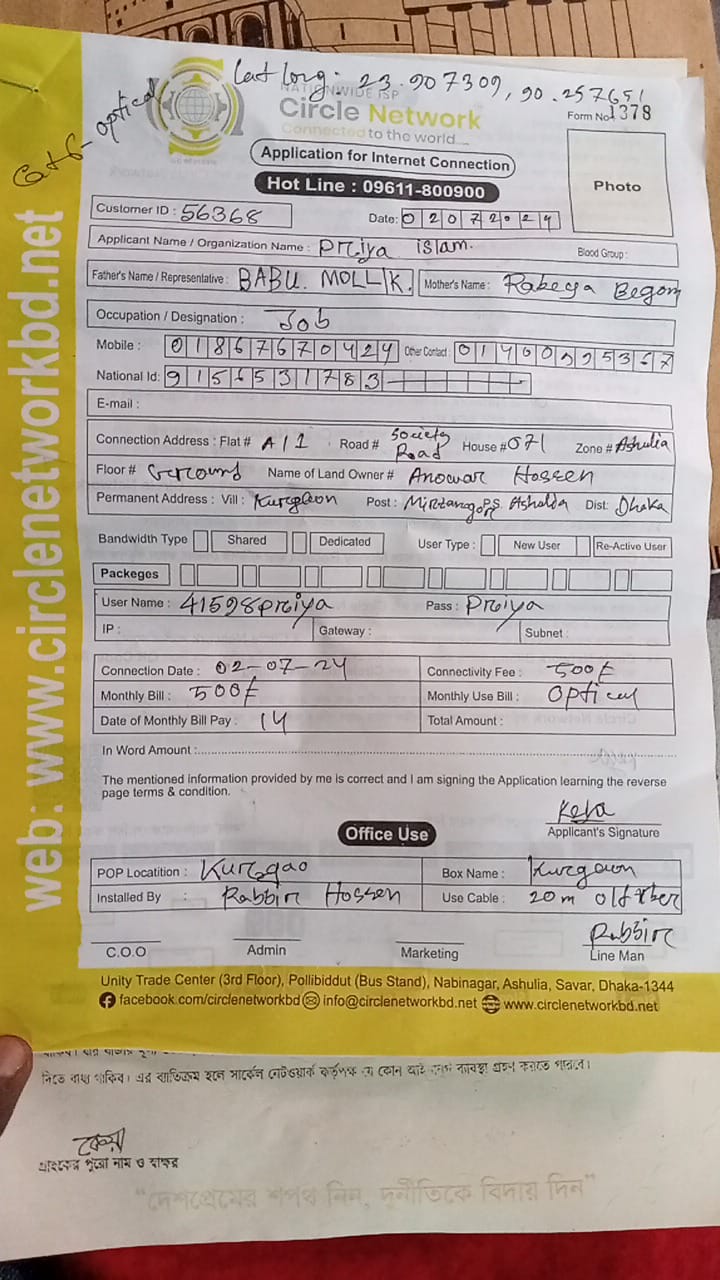 Lat long: 23.907309, 90.257651
G+S-Optical
NATIONWIDE ISP
Circle Network
Connected to the world....
Form No 1378
Application for Internet Connection
Hot Line : 09611-800900
Photo
Customer ID : 56368
Date: 02072024
Applicant Name / Organization Name : Priya islam. Blood Group :
Father's Name / Representative : BABU. MOLLIK. Mother's Name : Rabeya Begom
Occupation / Designation : Job
Mobile : 01867670424 Other Contact :
National Id: 9156531783
E-mail :
Connection Address : Flat # A/1 Road # Society Road House # 071 Zone # Ashulia
Floor # Ground Name of Land Owner # Anowar Hossen
Permanent Address : Vill : Kurgaon Post : P.S. Ashulia Dist: Dhaka
Bandwidth Type Shared Dedicated User Type : New User Re-Active User
Packeges
User Name : 41598priya Pass : Priya
IP : Gateway : Subnet :
Connection Date : 02-07-24 Connectivity Fee : 500৳
Monthly Bill : 500৳ Monthly Use Bill : Optical
Date of Monthly Bill Pay : 14 Total Amount :
In Word Amount :
The mentioned information provided by me is correct and I am signing the Application learning the reverse
page terms & condition.
Keya
Applicant's Signature
Office Use
POP Locatition : Kurgao Box Name : Kurgaon
Installed By : Rabbir Hossen Use Cable : 20m
Rabbir
C.O.O Admin Marketing Line Man
Unity Trade Center (3rd Floor), Pollibiddut (Bus Stand), Nabinagar, Ashulia, Savar, Dhaka-1344
facebook.com/circlenetworkbd info@circlenetworkbd.net www.circlenetworkbd.net
web: www.circlenetworkbd.net
নিতে বাধ্য থাকিব। এর ব্যতিক্রম হলে সার্কেল নেটওয়ার্ক কর্তৃপক্ষ যে কোন ব্যবস্থা গ্রহণ করতে পারবে।
কেয়া
গ্রাহকের পুরো নাম ও স্বাক্ষর
“দেশপ্রেমের শপথ নিন, দুর্নীতিকে বিদায় দিন”